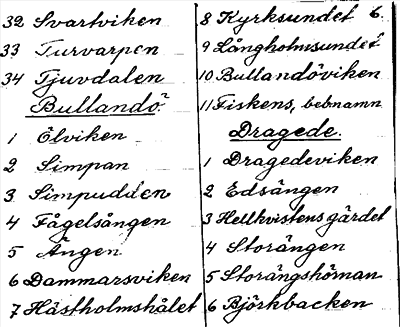 32 Svartviken
33 Turvarpen
34 Tjuvdalen
Bullandö?
1 Ölviken
2 Simpan
3 Simpudden
4 Fågelsången
5 Ängen
6 Dammarsviken
7 Hästholmshålet
8 Kyrksundet 6.
9 Långholmsundet
10 Bullandöviken
11 Fiskens, bebnamn
Dragede.
1 Dragedeviken
2 Edsängen
3 Hellkvistensgärdet
4 Storängen
5 Storängshörnan
6 Björkbacken